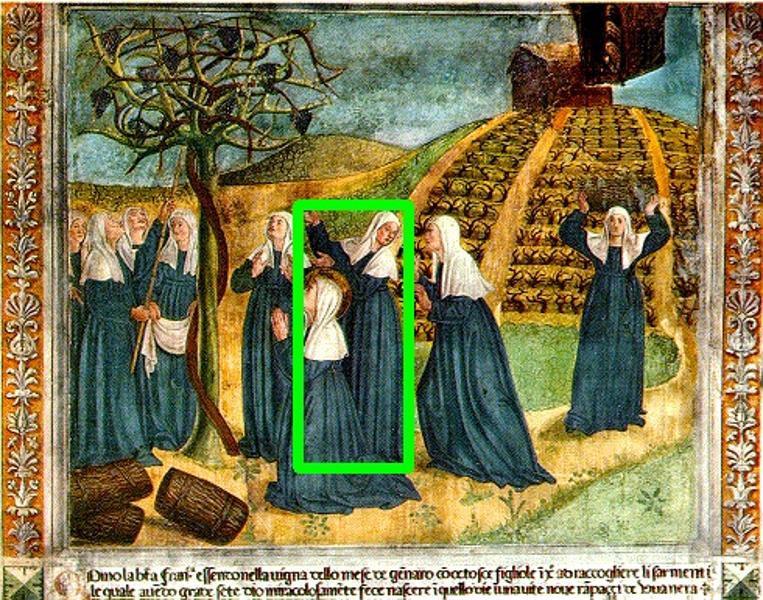 Como la bta fran.ca essendo nella vigna dello mese de gēnaro cō octo soe figliole ī xρ̄ ad raccogliere li sarmenti
le quale avēdo grāde sete dio miracolosamēte fece nascere ī quello die ī una vite nove rappazi de uva nera